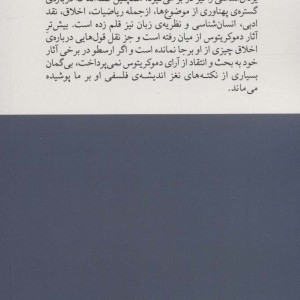 گستره‌ی پهناوری از موضوع‌ها، ازجمله ریاضیات، اخلاق، نقد
ادبی، انسان‌شناسی و نظریه‌ی زبان نیز قلم زده است. بیش‌تر
آثار دموکریتوس از میان رفته است و جز نقل قول‌هایی درباره‌ی
اخلاق چیزی از او برجا نمانده است و اگر ارسطو در برخی آثار
خود به بحث و انتقاد از آرای دموکریتوس نمی‌پرداخت، بی‌گمان
بسیاری از نکته‌های نغز اندیشه‌ی فلسفی او بر ما پوشیده
می‌ماند.